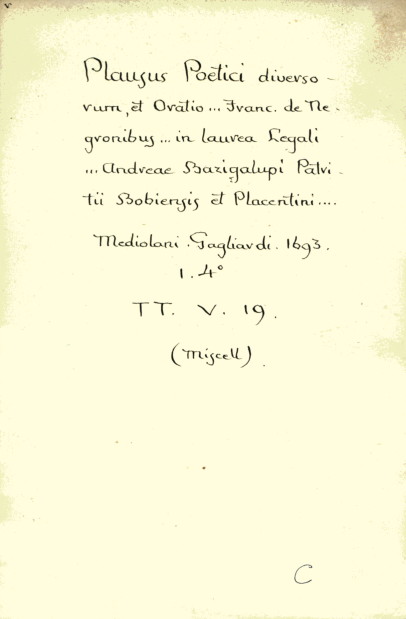 Plausus Poëtici diverso-
rum, et Oratio ... Franc. de Ne-
gronibus ... in laurea Legali
... Andreae Bazigalupi Patri-
tii Bobiensis et Placentini ....
Mediolani. Gagliardi. 1693.
1. 4°
TT. V. 19.
(Miscell)
C